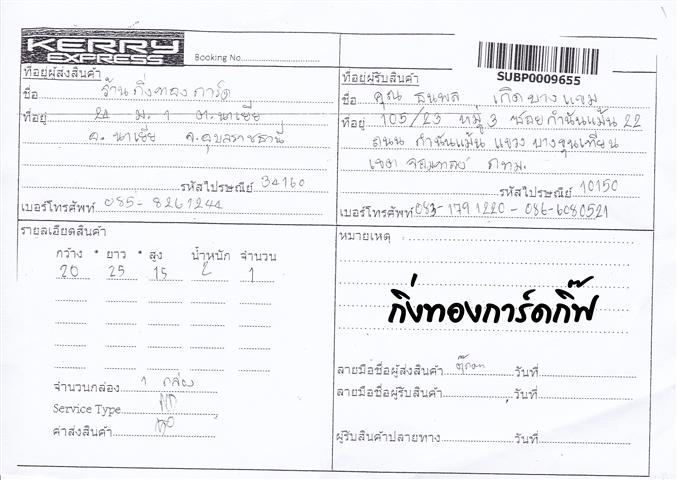 KERRY
EXPRESS
Booking No.
SUBP0009655
ที่อยู่ผู้ส่งสินค้า
ชื่อ ร้านกิ่งทองการ์ด
ที่อยู่ 24 ม. 1 ต.นาเยีย
อ. นาเยีย จ.อุบลราชธานี
รหัสไปรษณีย์ 34160
เบอร์โทรศัพท์ 085-8261244
ที่อยู่ผู้รับสินค้า
ชื่อ คุณ ธนพล เกิดบางแขม
ที่อยู่ 105/23 หมู่ 3 ซอยกำนันแม้น 22
ถนน กำนันแม้น แขวง บางขุนเทียน
เขต จอมทอง กทม.
รหัสไปรษณีย์ 10150
เบอร์โทรศัพท์ 083-1791220 - 086-6080521
รายละเอียดสินค้า
กว้าง * ยาว * สูง น้ำหนัก จำนวน
20 25 15 2 1
จำนวนกล่อง 1 กล่อง
Service Type
ค่าส่งสินค้า
หมายเหตุ
กิ่งทองการ์ดกิ๊ฟ
ลายมือชื่อผู้ส่งสินค้า วันที่
ลายมือชื่อผู้รับสินค้า วันที่
ผู้รับสินค้าปลายทาง วันที่